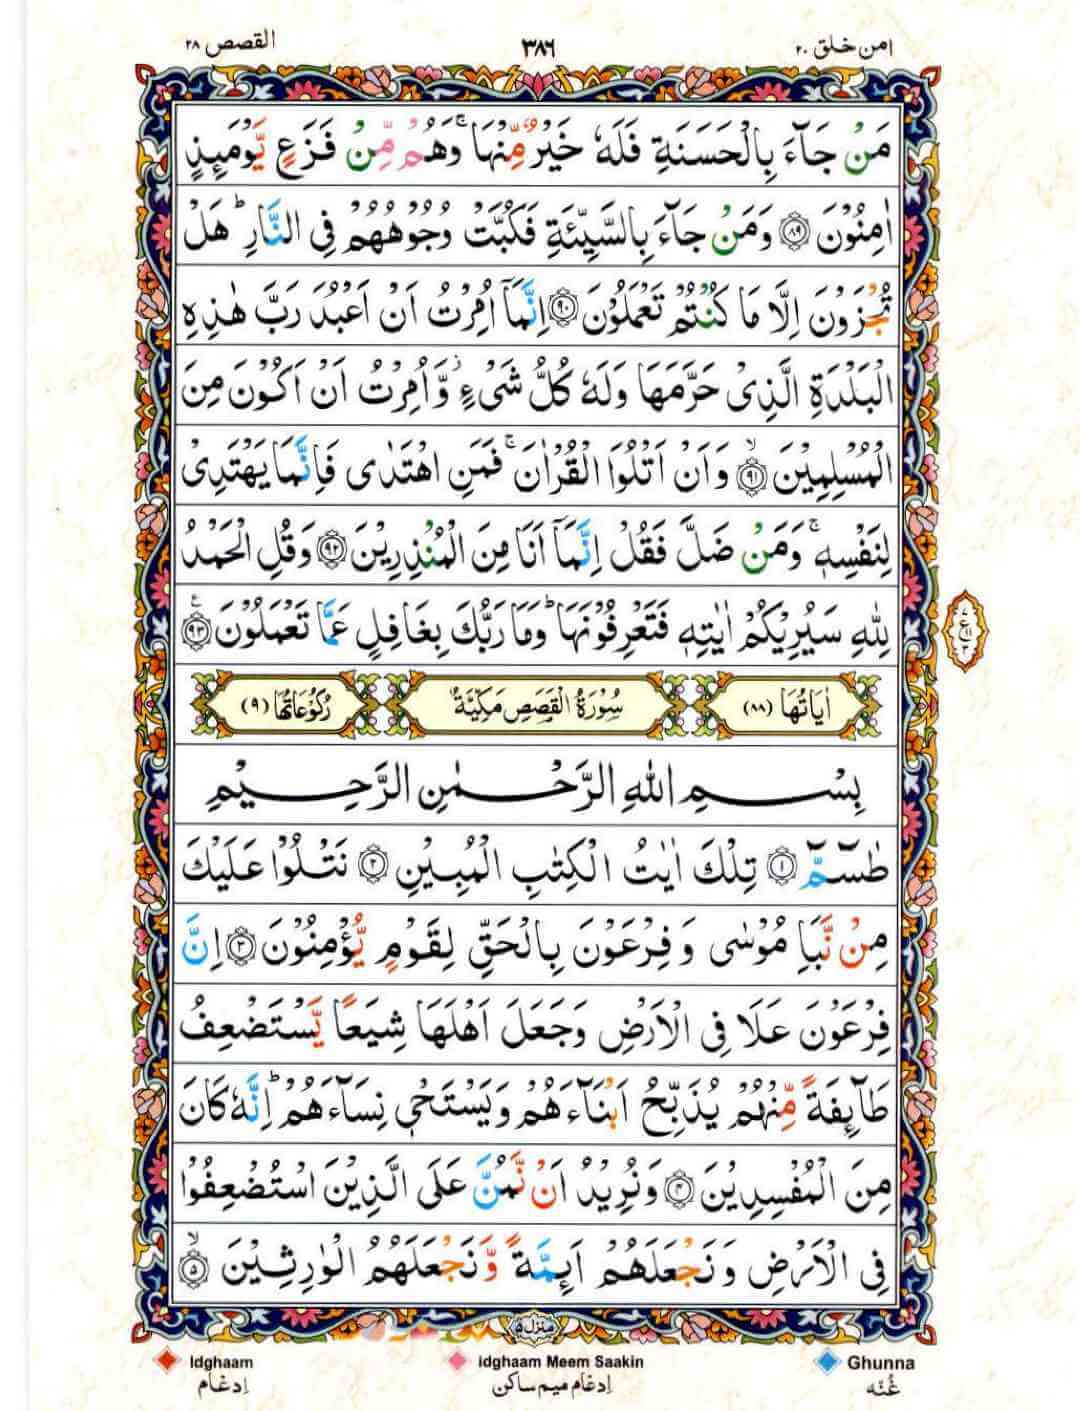 امن خلق ۲۰
۳۸۶
القصص ۲۸
مَنْ جَآءَ بِالْحَسَنَةِ فَلَهٗ خَيْرٌ مِّنْهَا ۚ وَهُمْ مِّنْ فَزَعٍ يَّوْمَئِذٍ
اٰمِنُوْنَ ﴿۸۹﴾ وَمَنْ جَآءَ بِالسَّيِّئَةِ فَكُبَّتْ وُجُوْهُهُمْ فِى النَّارِ ؕ هَلْ
تُجْزَوْنَ اِلَّا مَا كُنْتُمْ تَعْمَلُوْنَ ﴿۹۰﴾ اِنَّمَآ اُمِرْتُ اَنْ اَعْبُدَ رَبَّ هٰذِهِ
الْبَلْدَةِ الَّذِىْ حَرَّمَهَا وَلَهٗ كُلُّ شَىْءٍ ؗ وَّاُمِرْتُ اَنْ اَكُوْنَ مِنَ
الْمُسْلِمِيْنَ ۙ﴿۹۱﴾ وَاَنْ اَتْلُوَا الْقُرْاٰنَ ۚ فَمَنِ اهْتَدٰى فَاِنَّمَا يَهْتَدِىْ
لِنَفْسِهٖ ۚ وَمَنْ ضَلَّ فَقُلْ اِنَّمَآ اَنَا مِنَ الْمُنْذِرِيْنَ ﴿۹۲﴾ وَقُلِ الْحَمْدُ
لِلّٰهِ سَيُرِيْكُمْ اٰيٰتِهٖ فَتَعْرِفُوْنَهَا ؕ وَمَا رَبُّكَ بِغَافِلٍ عَمَّا تَعْمَلُوْنَ ﴿۹۳﴾ ع
اٰيَاتُهَا (۸۸) سُوْرَةُ الْقَصَصِ مَكِّيَّةٌ رُكُوْعَاتُهَا (۹)
بِسْمِ اللّٰهِ الرَّحْمٰنِ الرَّحِيْمِ
طٰسٓمّٓ ﴿۱﴾ تِلْكَ اٰيٰتُ الْكِتٰبِ الْمُبِيْنِ ﴿۲﴾ نَتْلُوْا عَلَيْكَ
مِنْ نَّبَاِ مُوْسٰى وَفِرْعَوْنَ بِالْحَقِّ لِقَوْمٍ يُّؤْمِنُوْنَ ﴿۳﴾ اِنَّ
فِرْعَوْنَ عَلَا فِى الْاَرْضِ وَجَعَلَ اَهْلَهَا شِيَعًا يَّسْتَضْعِفُ
طَآئِفَةً مِّنْهُمْ يُذَبِّحُ اَبْنَآءَهُمْ وَيَسْتَحْىٖ نِسَآءَهُمْ ؕ اِنَّهٗ كَانَ
مِنَ الْمُفْسِدِيْنَ ﴿۴﴾ وَنُرِيْدُ اَنْ نَّمُنَّ عَلَى الَّذِيْنَ اسْتُضْعِفُوْا
فِى الْاَرْضِ وَنَجْعَلَهُمْ اَئِمَّةً وَّنَجْعَلَهُمُ الْوٰرِثِيْنَ ۙ﴿۵﴾
منزل ۵
Idghaam idghaam Meem Saakin Ghunna
اِدغام اِدغام میم ساکن غُنّه